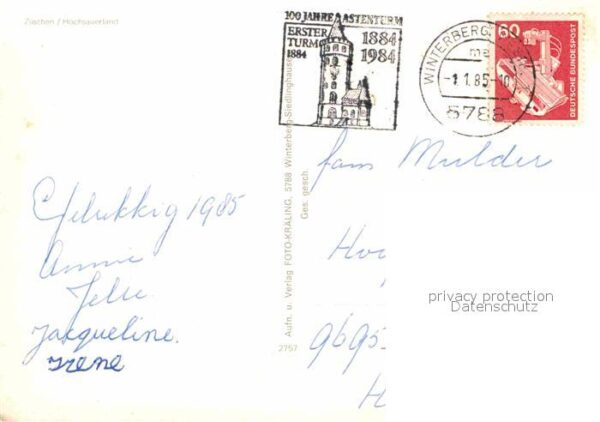 Züschen / Hochsauerland
100 JAHRE ASTENTURM
ERSTER
TURM
1884
1884
1984
WINTERBERG,
me
-1.1.85-10
5788
60
DEUTSCHE BUNDESPOST
Aufn. u. Verlag FOTO-KRALING, 5788 Winterberg-Siedlinghausen
Ges. gesch.
2757
fam Mulder
Gelukkig 1985
Annie
Jelle.
Jacqueline.
Irene
9695-
H
privacy protection
Datenschutz